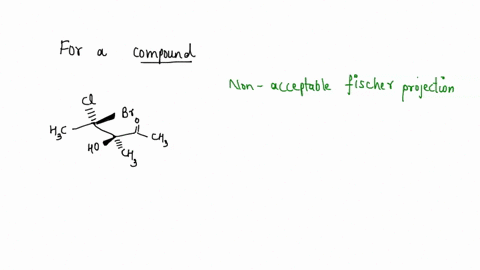 For a compound
Non-acceptable fischer projection
Cl
Br
O
H₃C
CH₃
HO
CH₃